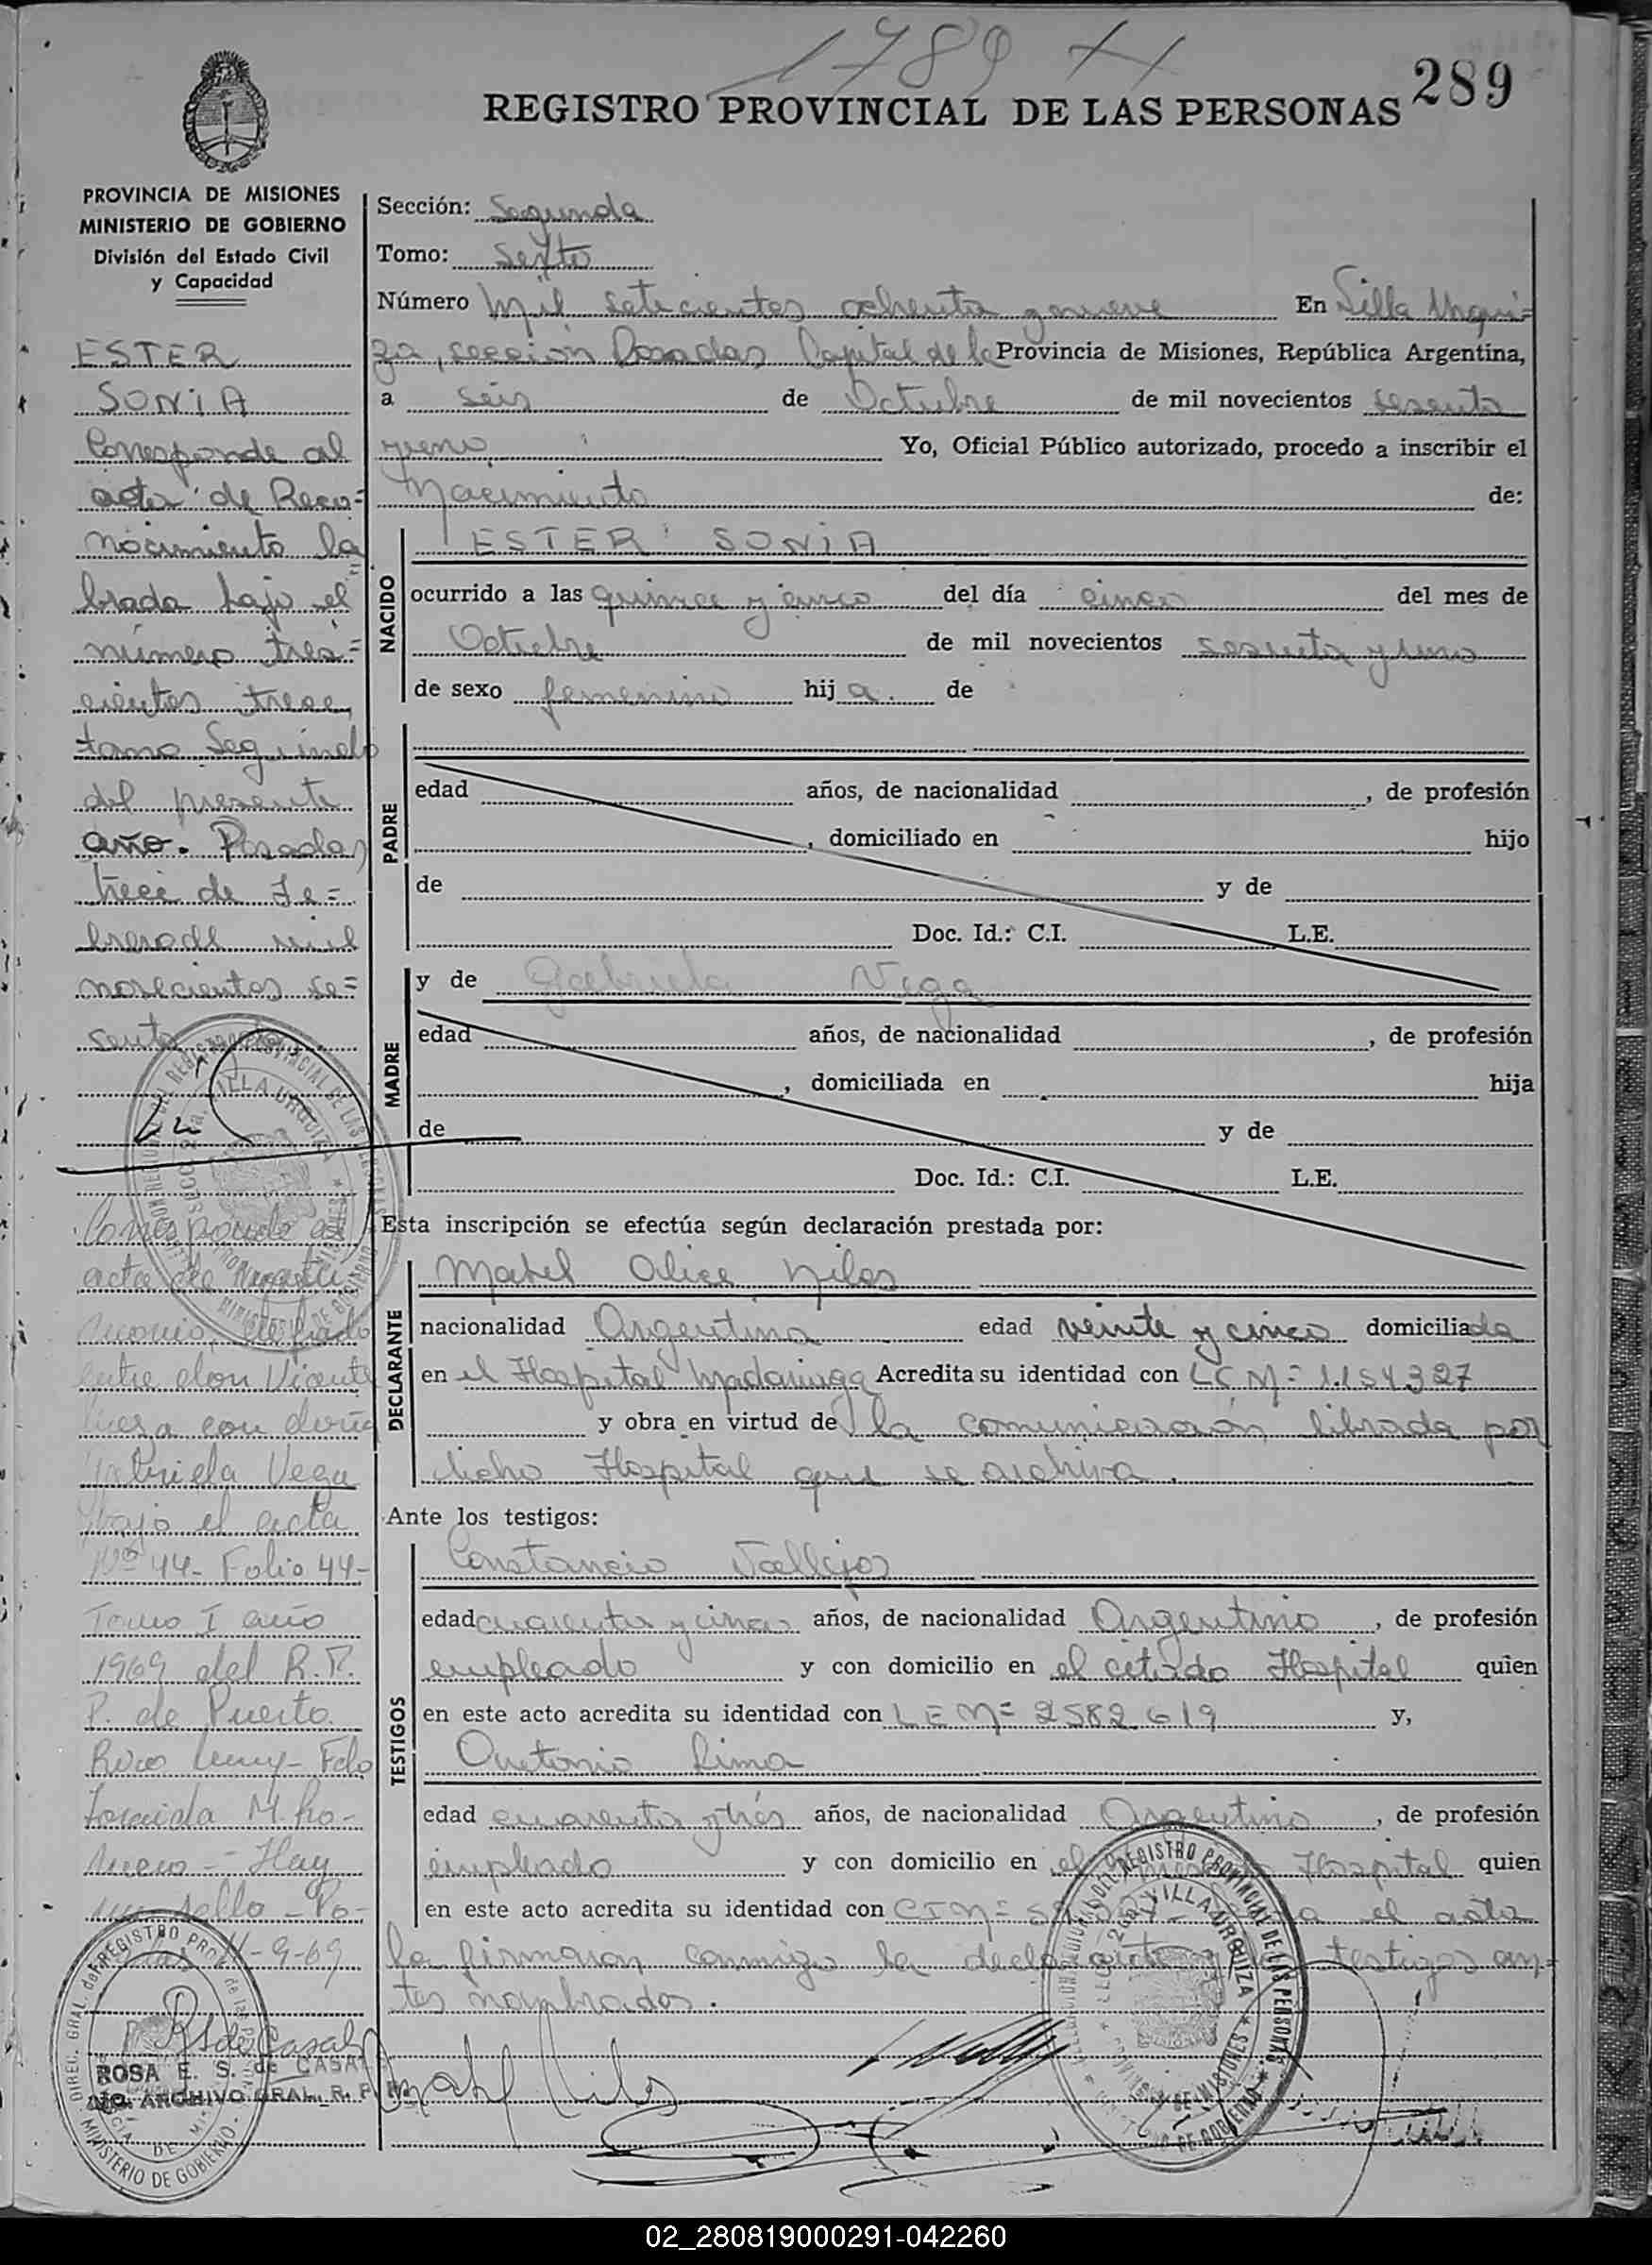 1789
289
REGISTRO PROVINCIAL DE LAS PERSONAS
PROVINCIA DE MISIONES
MINISTERIO DE GOBIERNO
División del Estado Civil
y Capacidad
ESTER
SONIA
Corresponde al
acta de Reco=
nocimiento la
brada bajo el
número tres=
cientos trece
tomo Segundo
del presente
año. Posadas,
trece de Fe=
brero de mil
novecientos se=
senta
Corresponde al
acta de
entre don Vicente
con doña
Gabriela Vega
bajo el acta
Nº 44- Folio 44-
Tomo I año
1969 del R.P.
P. de Puerto
Rico
M. Ro-
mero - Hay
un sello - Po-
11-9-69
ROSA E. S. de CASAL
ARCHIVO GRAL. R. P.
Sección: Segunda
Tomo: Sexto
Número Mil setecientos ochenta y nueve En Villa Urqui=
za, sección Posadas Capital de la Provincia de Misiones, República Argentina,
a seis de Octubre de mil novecientos sesenta
y uno Yo, Oficial Público autorizado, procedo a inscribir el
Nacimiento de:
NACIDO
ESTER SONIA
ocurrido a las quince y cinco del día cinco del mes de
Octubre de mil novecientos sesenta y uno
de sexo femenino hija de
PADRE
edad años, de nacionalidad , de profesión
, domiciliado en hijo
de y de
Doc. Id.: C.I. L.E.
MADRE
y de Gabriela Vega
edad años, de nacionalidad , de profesión
, domiciliada en hija
de y de
Doc. Id.: C.I. L.E.
Esta inscripción se efectúa según declaración prestada por:
DECLARANTE
Mabel Alice Niles
nacionalidad Argentina edad veinte y cinco domiciliada
en el Hospital Madariaga Acredita su identidad con LC Nº= 1.154.327
y obra en virtud de la comunicación librada por
dicho Hospital que se archiva.
Ante los testigos:
TESTIGOS
Constancio Vallejos
edad cuarenta y cinco años, de nacionalidad Argentino, de profesión
empleado y con domicilio en el citado Hospital quien
en este acto acredita su identidad con L E Nº= 2582619 y,
Antonio Lima
edad cuarenta y tres años, de nacionalidad Argentino, de profesión
empleado y con domicilio en el Hospital quien
en este acto acredita su identidad con CI Nº= el acta
la firmaron conmigo la declarante y testigos an=
tes nombrados.
REGISTRO PROVINCIAL DE LAS PERSONAS
VILLA URQUIZA
MINISTERIO DE GOBIERNO
02_280819000291-042260